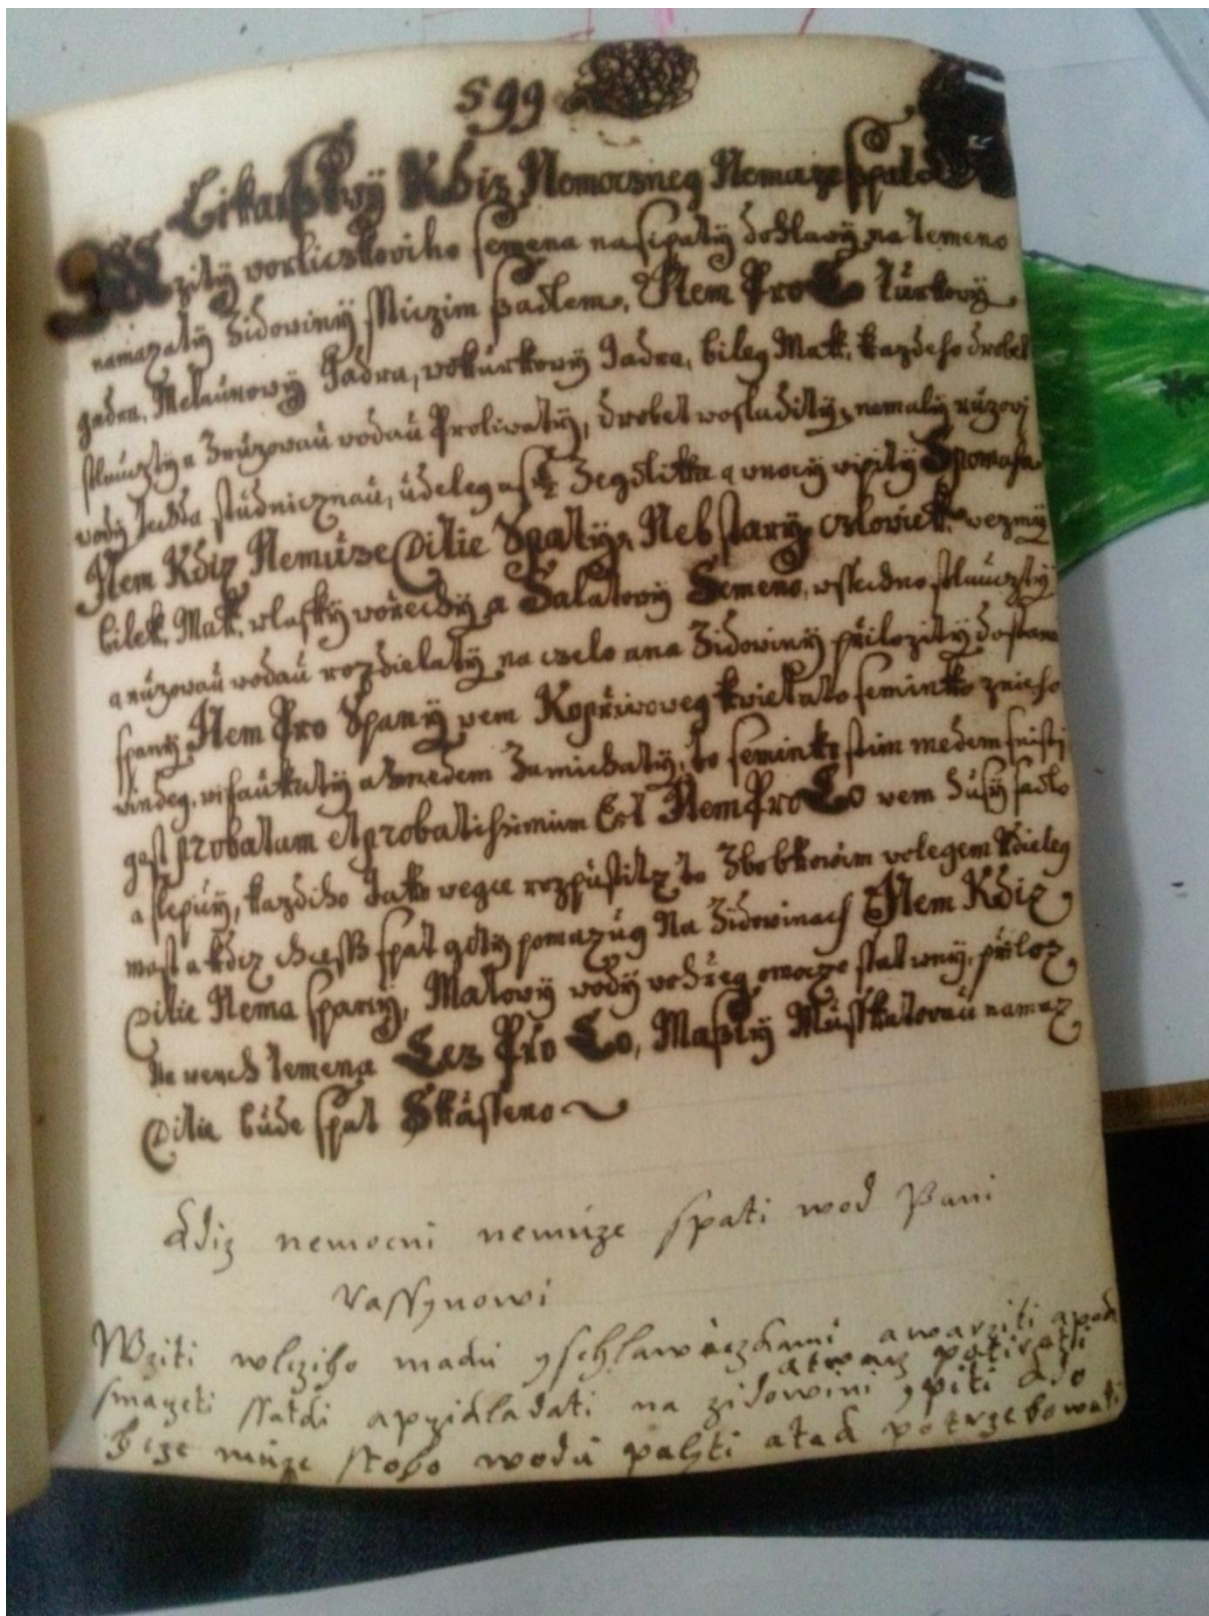 599
Likarstwy Kdiz Nemoczneg Nemuze Spat
Wzity worliczkoviho semena nasipaty do hlawy na temeno
namazaty Židowiny Sliczim sadlem, Item Pro To turkowy
gadra, Melaunowy Jadra, wokurkowy Jadra, bileg Mak, kazdeho drobet
stlauczty a Z ruzowau wodau Proliwaty, drobet wosladity, nemaly ruzowj
wody Jakka studnicznau, udeleg as ½ Zegdlitka a wnocy wipity Spomaha
Item Kdiz Nemuze Ditie Spaty, Neb stary czlowiek, wezmy
bilek, Mak, wlasky worzechy a Salatowy Semeno, wssechno stlauczty
a ruzowau wodau rozdielaty na czelo a na Židowiny przilozity dostane
spany Item Pro Spany wem Kopřiwoweg kwiet a to seminko z nieho
windeg, wifaukaty a s medem Zamichaty, to seminko s tim medem snisti
gest probatum et probatissimum Est Item Pro To wem Husy sadlo
a slepicy, kazdiho Jako wegce rozpustitz to Z bobkowim wolegem Kdieleg
mast a kdiz chcessS spat gdity pomazug Na Židowinach Item Kdiz
Ditie Nema spany, Makowy wody wohřeg omocze ssat wny, přiloz
Na werch temena Lez Pro To, Masty Musskatowau namaz
Ditie bude spat Sskasteno
Kdiz nemocni nemuze spati wod Pani
Rassynowi
Wziti wlcziho madu y schlawiczkami a warziti apod
smazeti ssatdi a pzikladati na zidowini y piti
Beze muze s toho wodu paliti a tak potrzebowati